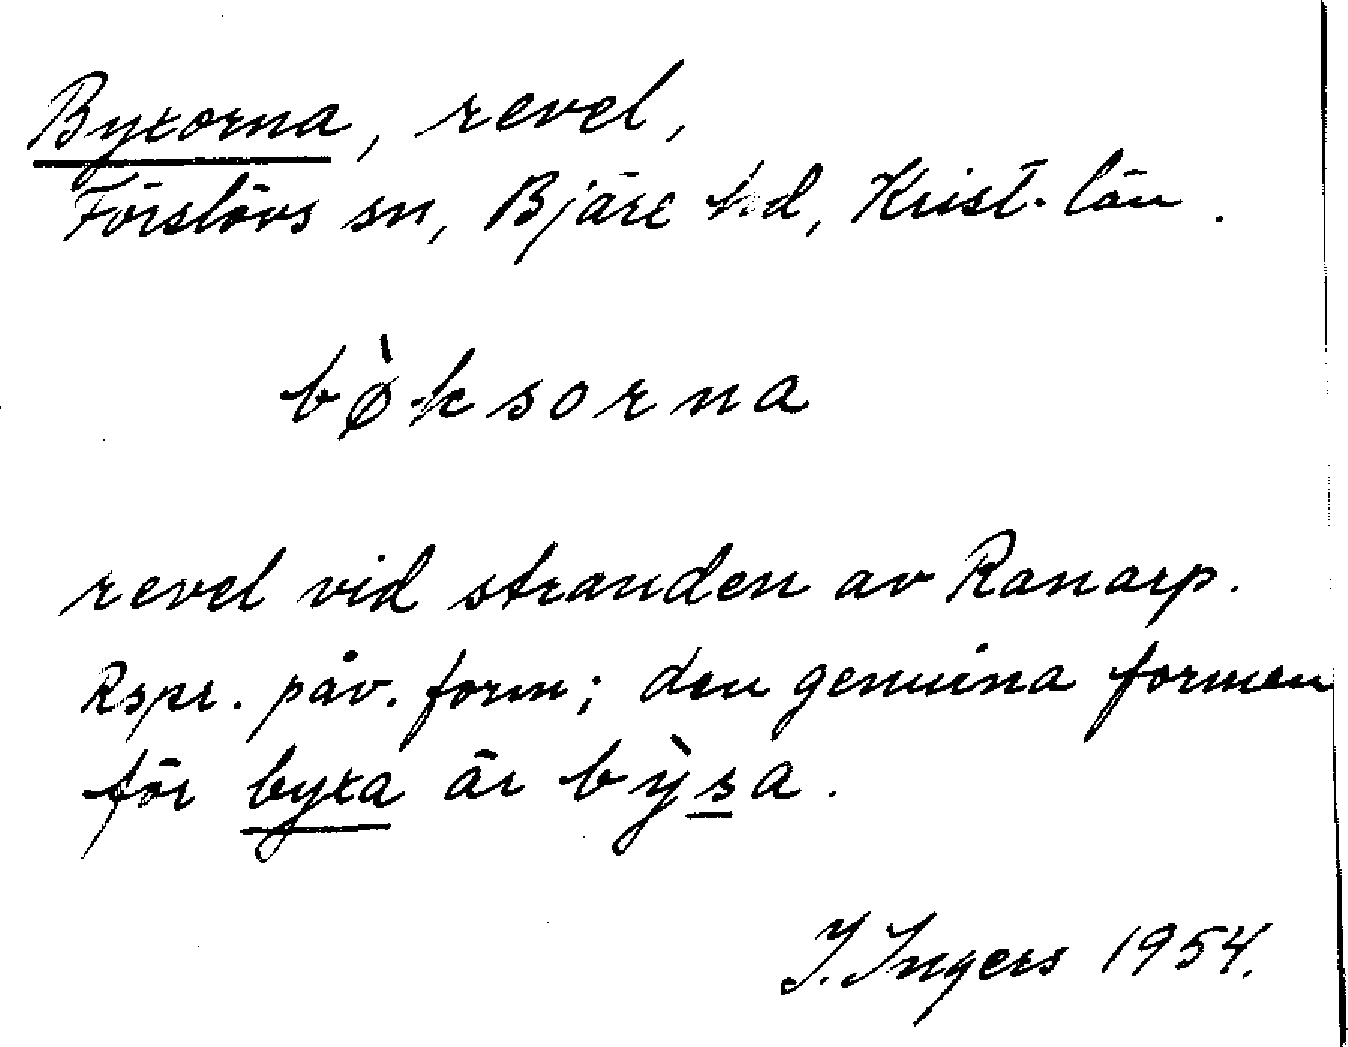 Byxorna, revel,
Förslövs sn, Bjäre hd, Krist. län.
bø̀ksorna
revel vid stranden av Ranarp.
Rspr. påv. form; den genuina formen
för byxa är bỳsa.
I. Ingers 1954.